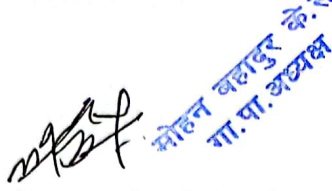 मोहन बहादुर के.
गा.पा.अध्यक्ष